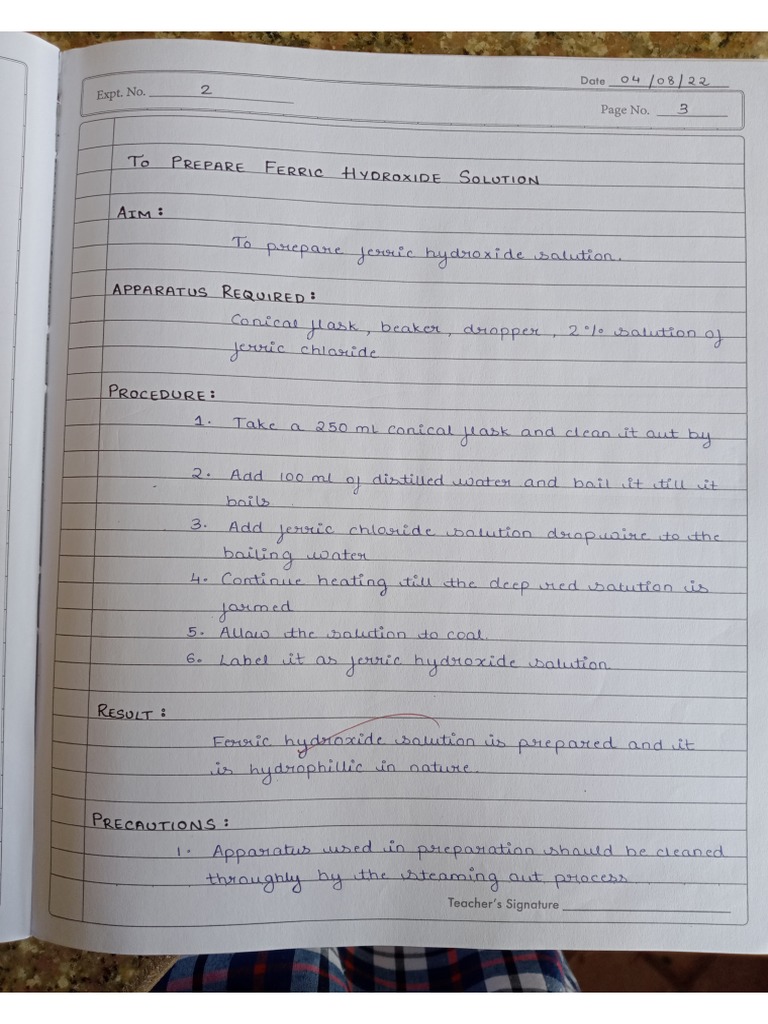 Date 04/08/22
Expt. No. 2
Page No. 3
TO PREPARE FERRIC HYDROXIDE SOLUTION
AIM:
To prepare ferric hydroxide solution.
APPARATUS REQUIRED:
Conical flask, beaker, dropper, 2% solution of
ferric chloride
PROCEDURE:
1. Take a 250 ml conical flask and clean it out by
2. Add 100 ml of distilled water and boil it till it
boils
3. Add ferric chloride solution dropwire to the
boiling water
4. Continue heating till the deep red solution is
formed
5. Allow the solution to cool.
6. Label it as ferric hydroxide solution
RESULT:
Ferric hydroxide solution is prepared and it
is hydrophillic in nature.
PRECAUTIONS:
1. Apparatus used in preparation should be cleaned
throughly by the steaming out process
Teacher's Signature